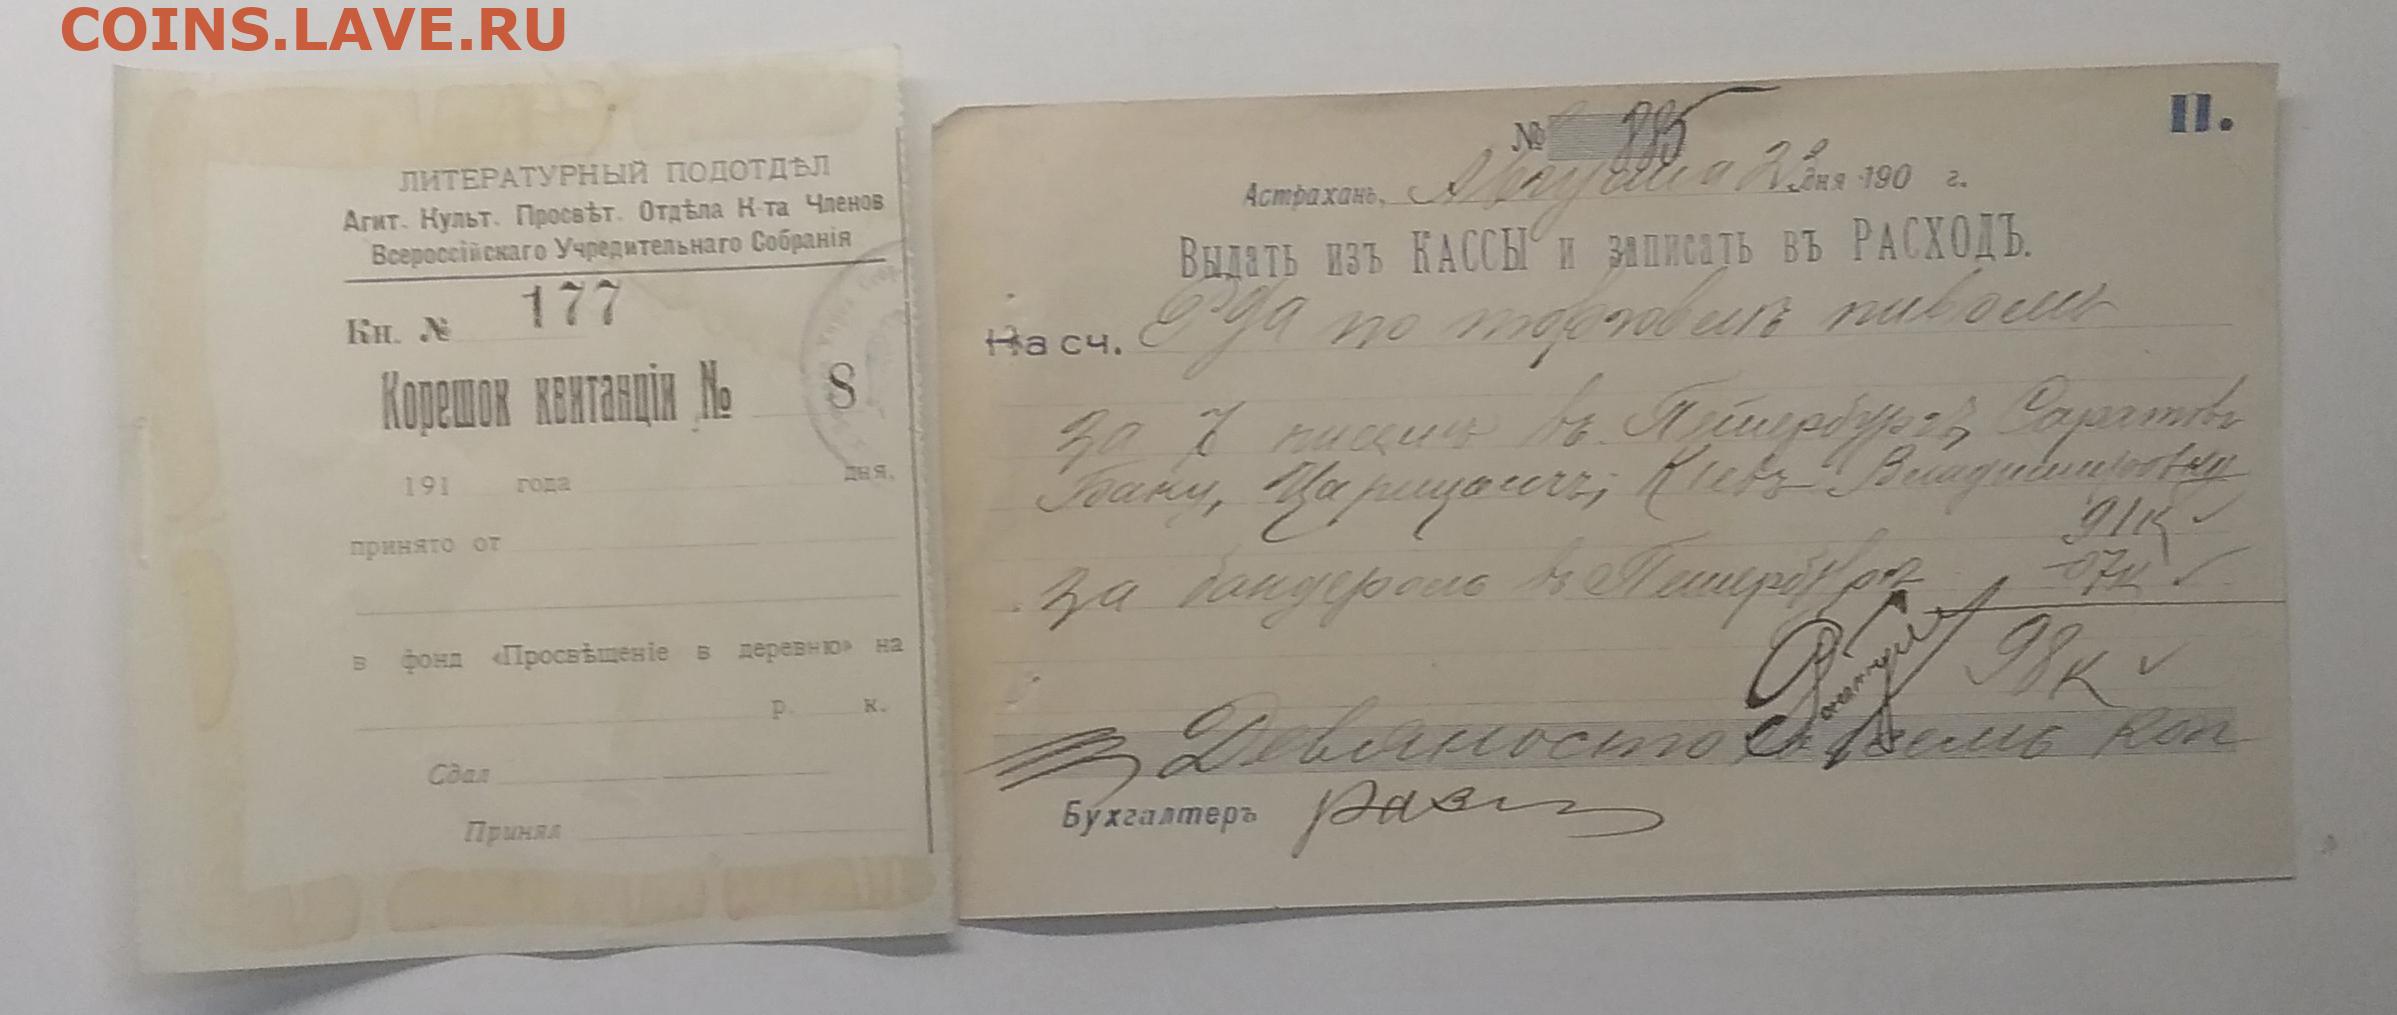 COINS.LAVE.RU
ЛИТЕРАТУРНЫЙ ПОДОТДѢЛ
Агит. Культ. Просвѣт. Отдѣла К-та Членов
Всероссійскаго Учредительнаго Собранія
Кн. № 177
Корешок квитанціи № 8
191 года дня.
принято от
в фонд «Просвѣщеніе в деревню» на
р. к.
Сдал
Принял
II.
№ 885
Астрахань, Августа 22 дня 190 г.
Выдать изъ КАССЫ и записать въ РАСХОДЪ.
На сч. по торговлѣ пивомъ
за 7 писемъ въ Петербургъ, Саратовъ
Баку, Царицынъ, Кіевъ Владимировку
91к
за бандероль въ Петербургъ 07к
98к
Девяносто восемь коп
Бухгалтеръ